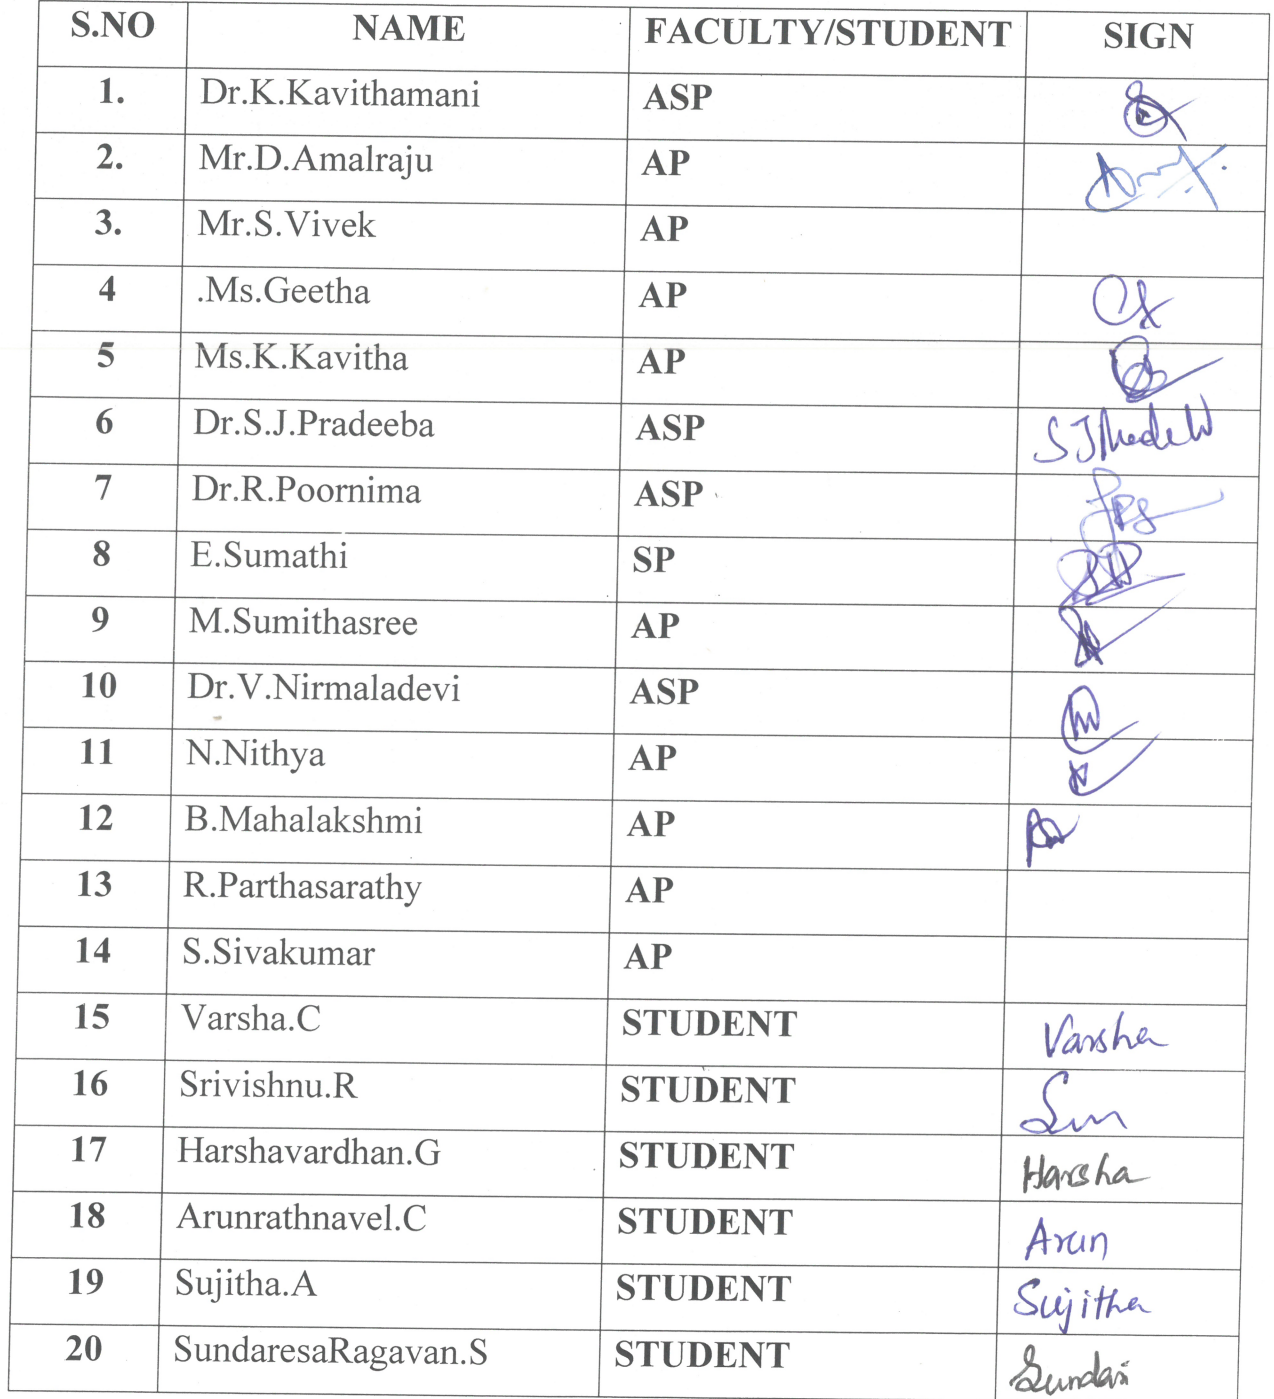 S.NO NAME FACULTY/STUDENT SIGN
1. Dr.K.Kavithamani ASP
2. Mr.D.Amalraju AP
3. Mr.S.Vivek AP
4 .Ms.Geetha AP
5 Ms.K.Kavitha AP
6 Dr.S.J.Pradeeba ASP
7 Dr.R.Poornima ASP
8 E.Sumathi SP
9 M.Sumithasree AP
10 Dr.V.Nirmaladevi ASP
11 N.Nithya AP
12 B.Mahalakshmi AP
13 R.Parthasarathy AP
14 S.Sivakumar AP
15 Varsha.C STUDENT Varsha
16 Srivishnu.R STUDENT
17 Harshavardhan.G STUDENT Harsha
18 Arunrathnavel.C STUDENT Arun
19 Sujitha.A STUDENT Sujitha
20 SundaresaRagavan.S STUDENT